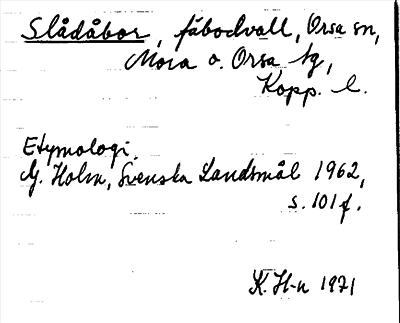 Slådåbor, fäbodvall, Orsa sn,
Mora o. Orsa tg,
Kopp. l.
Etymologi.
G. Holm, Svenska Landsmål 1962,
s. 101 f.
K. H-n 1971